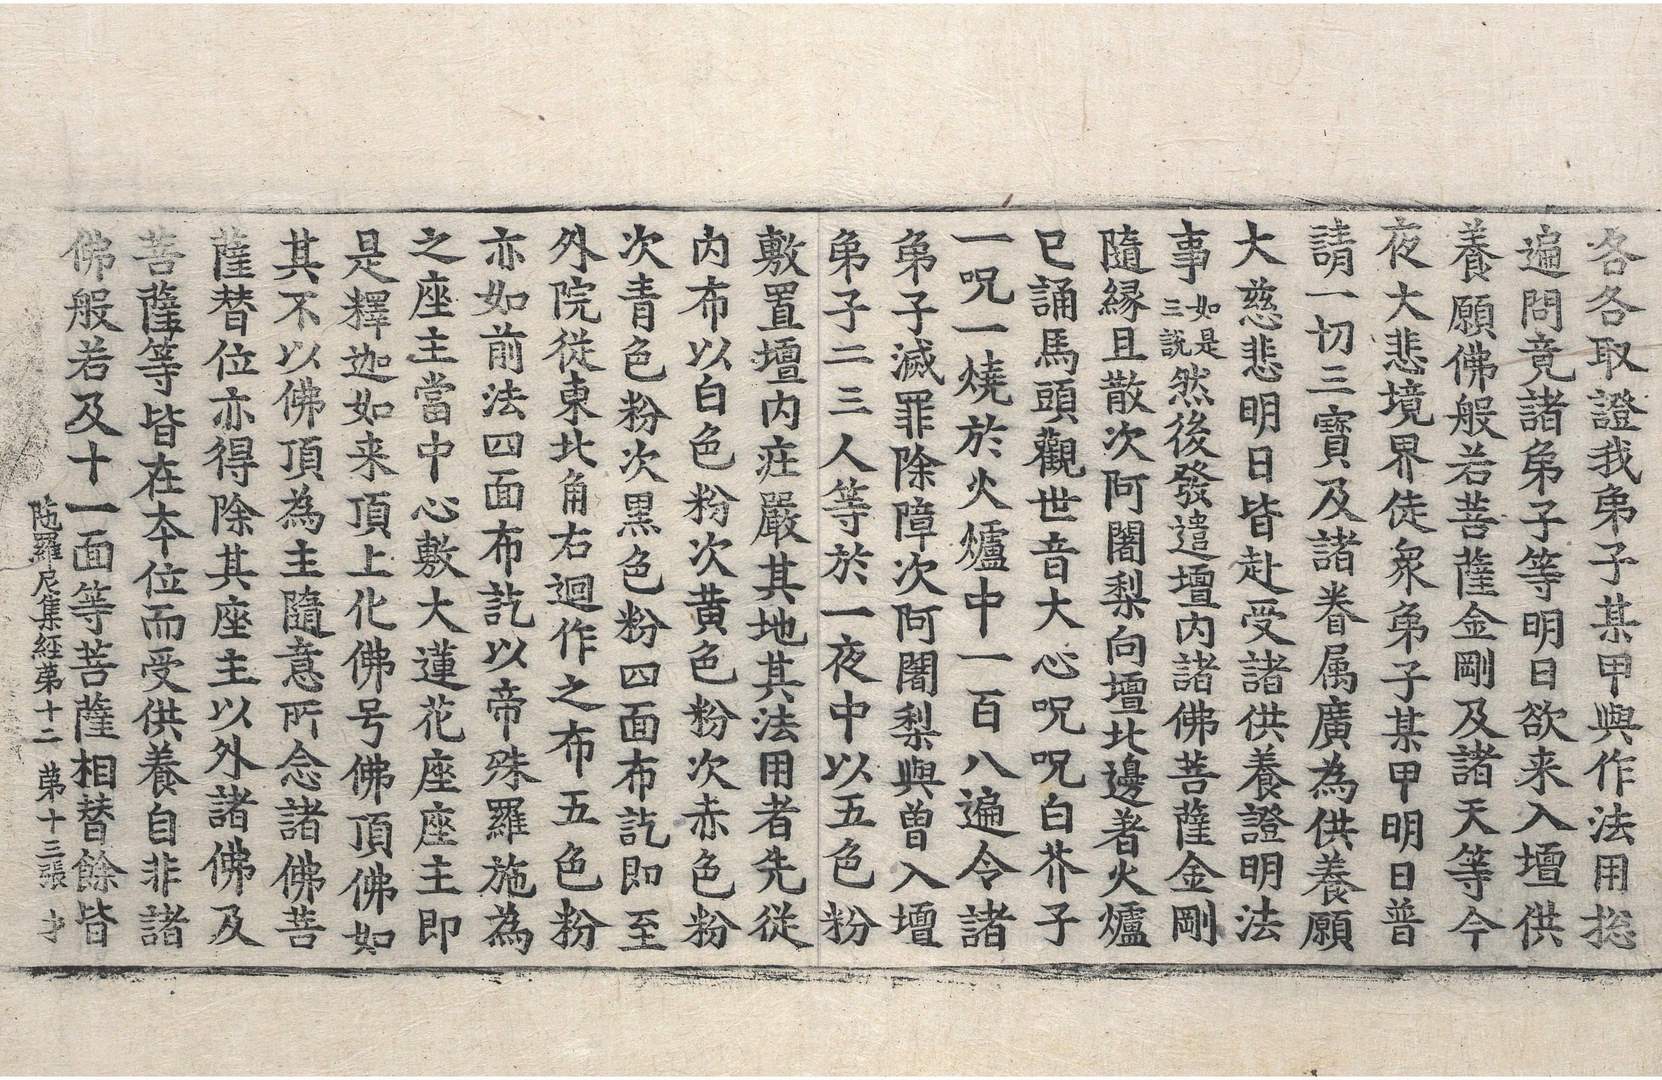 各各取證我弟子某甲與作法用捴
遍問竟諸弟子等明日欲来入壇供
養願佛般若菩薩金剛及諸天等今
夜大悲境界徒衆弟子某甲明日普
請一切三寶及諸眷属廣為供養願
大慈悲明日皆赴受諸供養證明法
事如是三說然後發遣壇内諸佛菩薩金剛
隨緣且散次阿闍梨向壇北邊著火爐
已誦馬頭觀世音大心呪呪白芥子
一呪一燒於火爐中一百八遍令諸
弟子滅罪除障次阿闍梨與曾入壇
弟子二三人等於一夜中以五色粉
敷置壇内庄嚴其地其法用者先從
内布以白色粉次黄色粉次赤色粉
次青色粉次黒色粉四面布訖即至
外院從東北角右迴作之布五色粉
亦如前法四面布訖以帝殊羅施為
之座主當中心敷大蓮花座座主即
是釋迦如来頂上化佛号佛頂佛如
其不以佛頂為主隨意所念諸佛菩
薩替位亦得除其座主以外諸佛及
菩薩等皆在本位而受供養自非諸
佛般若及十一面等菩薩相替餘皆
陁羅尼集經第十二 第十三張 才